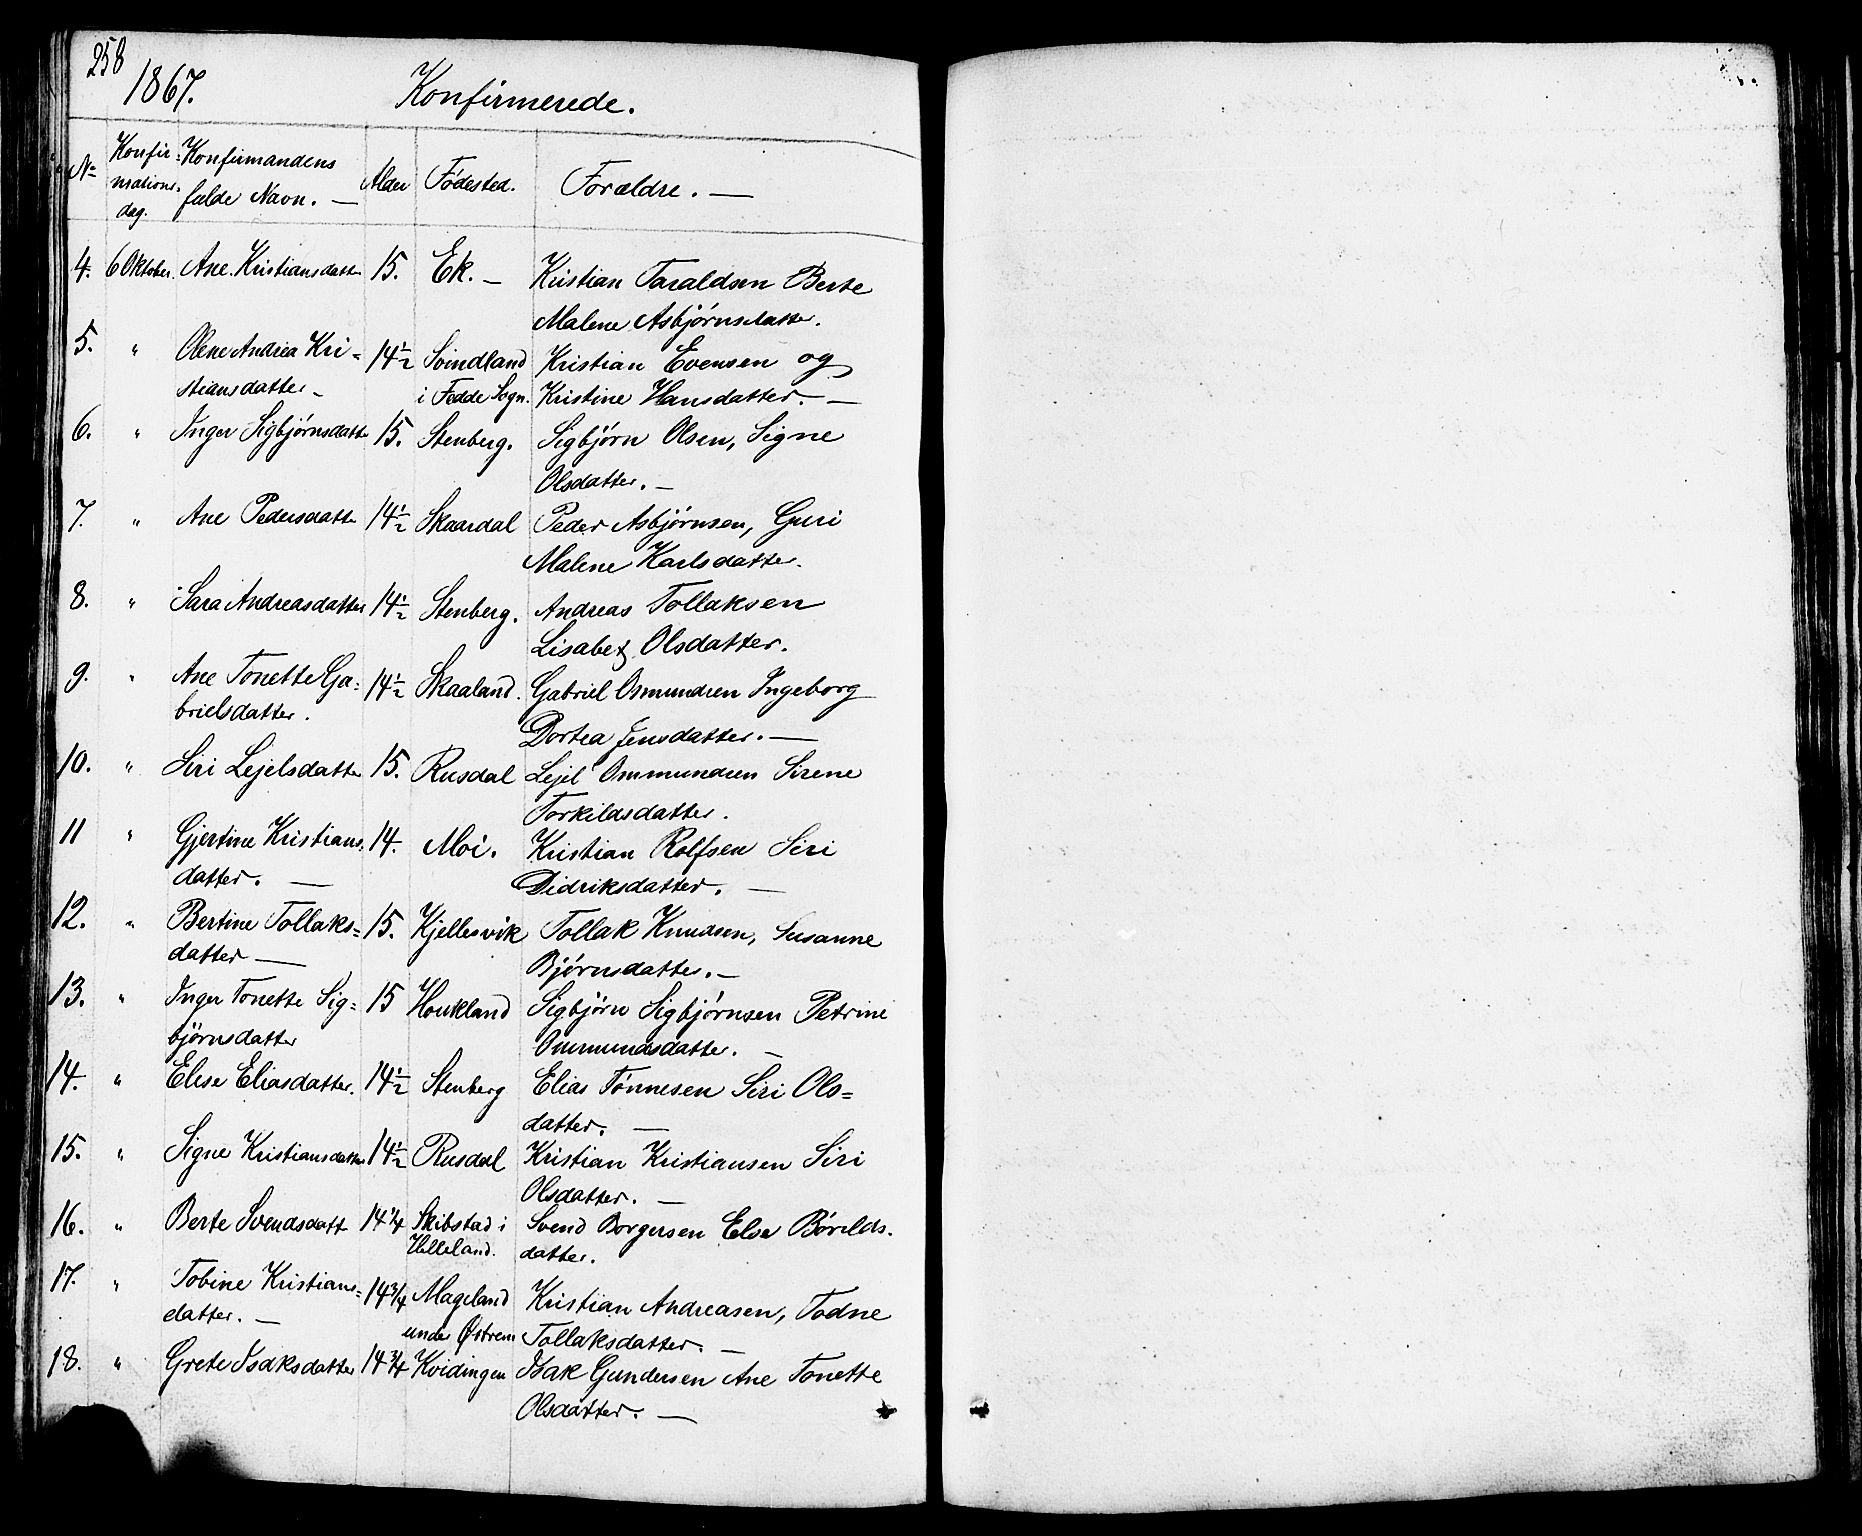 258
1867.
Konfirmerede.
No Konfir- Konfirmandens Alder Fødested. Forældre. —
mations- fulde Navn. —
dag.
4. 6 Oktober. Ane Kristiansdatter 15. Ek. — Kristian Taraldsen Berte
Malene Asbjørnsdatter.
5. " Olene Andrea Kri= 14½ Svindland Kristian Evensen og
stiansdatter — i Fedde Sogn. Kristine Hansdatter. —
6. " Inger Sigbjørnsdatter 15. Stenberg. Sigbjørn Olsen, Signe
Olsdatter. —
7. " Ane Pedersdatter 14½ Skaardal Peder Asbjørnsen, Guri
Malene Karlsdatter.
8. " Sara Andreasdatter 14½ Stenberg. Andreas Tollaksen
Lisabet Olsdatter.
9. " Ane Tonette Ga= 14½ Skaaland. Gabriel Osmundsen Ingeborg
brielsdatter. Dortea Jensdatter. —
10. " Siri Lejelsdatter 15. Rusdal Lejel Ommundsen Sirene
Torkildsdatter.
11 " Gjertine Kristians. 14. Moi. Kristian Rolfsen Siri
datter. — Didriksdatter. —
12. " Bertine Tollaks= 15. Kjellesvik Tollak Knudsen, Susanne
datter — Bjørnsdatter. —
13. " Inger Tonette Sig= 15 Houkland Sigbjørn Sigbjørnsen Petrine
bjørnsdatter Ommundsdatter. —
14. " Elise Eliasdatter. 14½ Stenberg Elias Tønnesen Siri Ols=
datter. —
15. " Signe Kristiansdatter 14½ Rusdal Kristian Kristiansen Siri
Olsdatter. —
16. " Berte Svendsdatt 14¼ Skibstad i Svend Borgersen Else Børilds.
Helleland. datter.
17. " Tobine Kristians= 14¾ Mageland Kristian Andreasen, Todne
datter. — under Østrem Tollaksdatter. —
18. " Grete Isaksdatter 14¾ Kvidingen Isak Gundersen Ane Tonette
Olsdatter. —